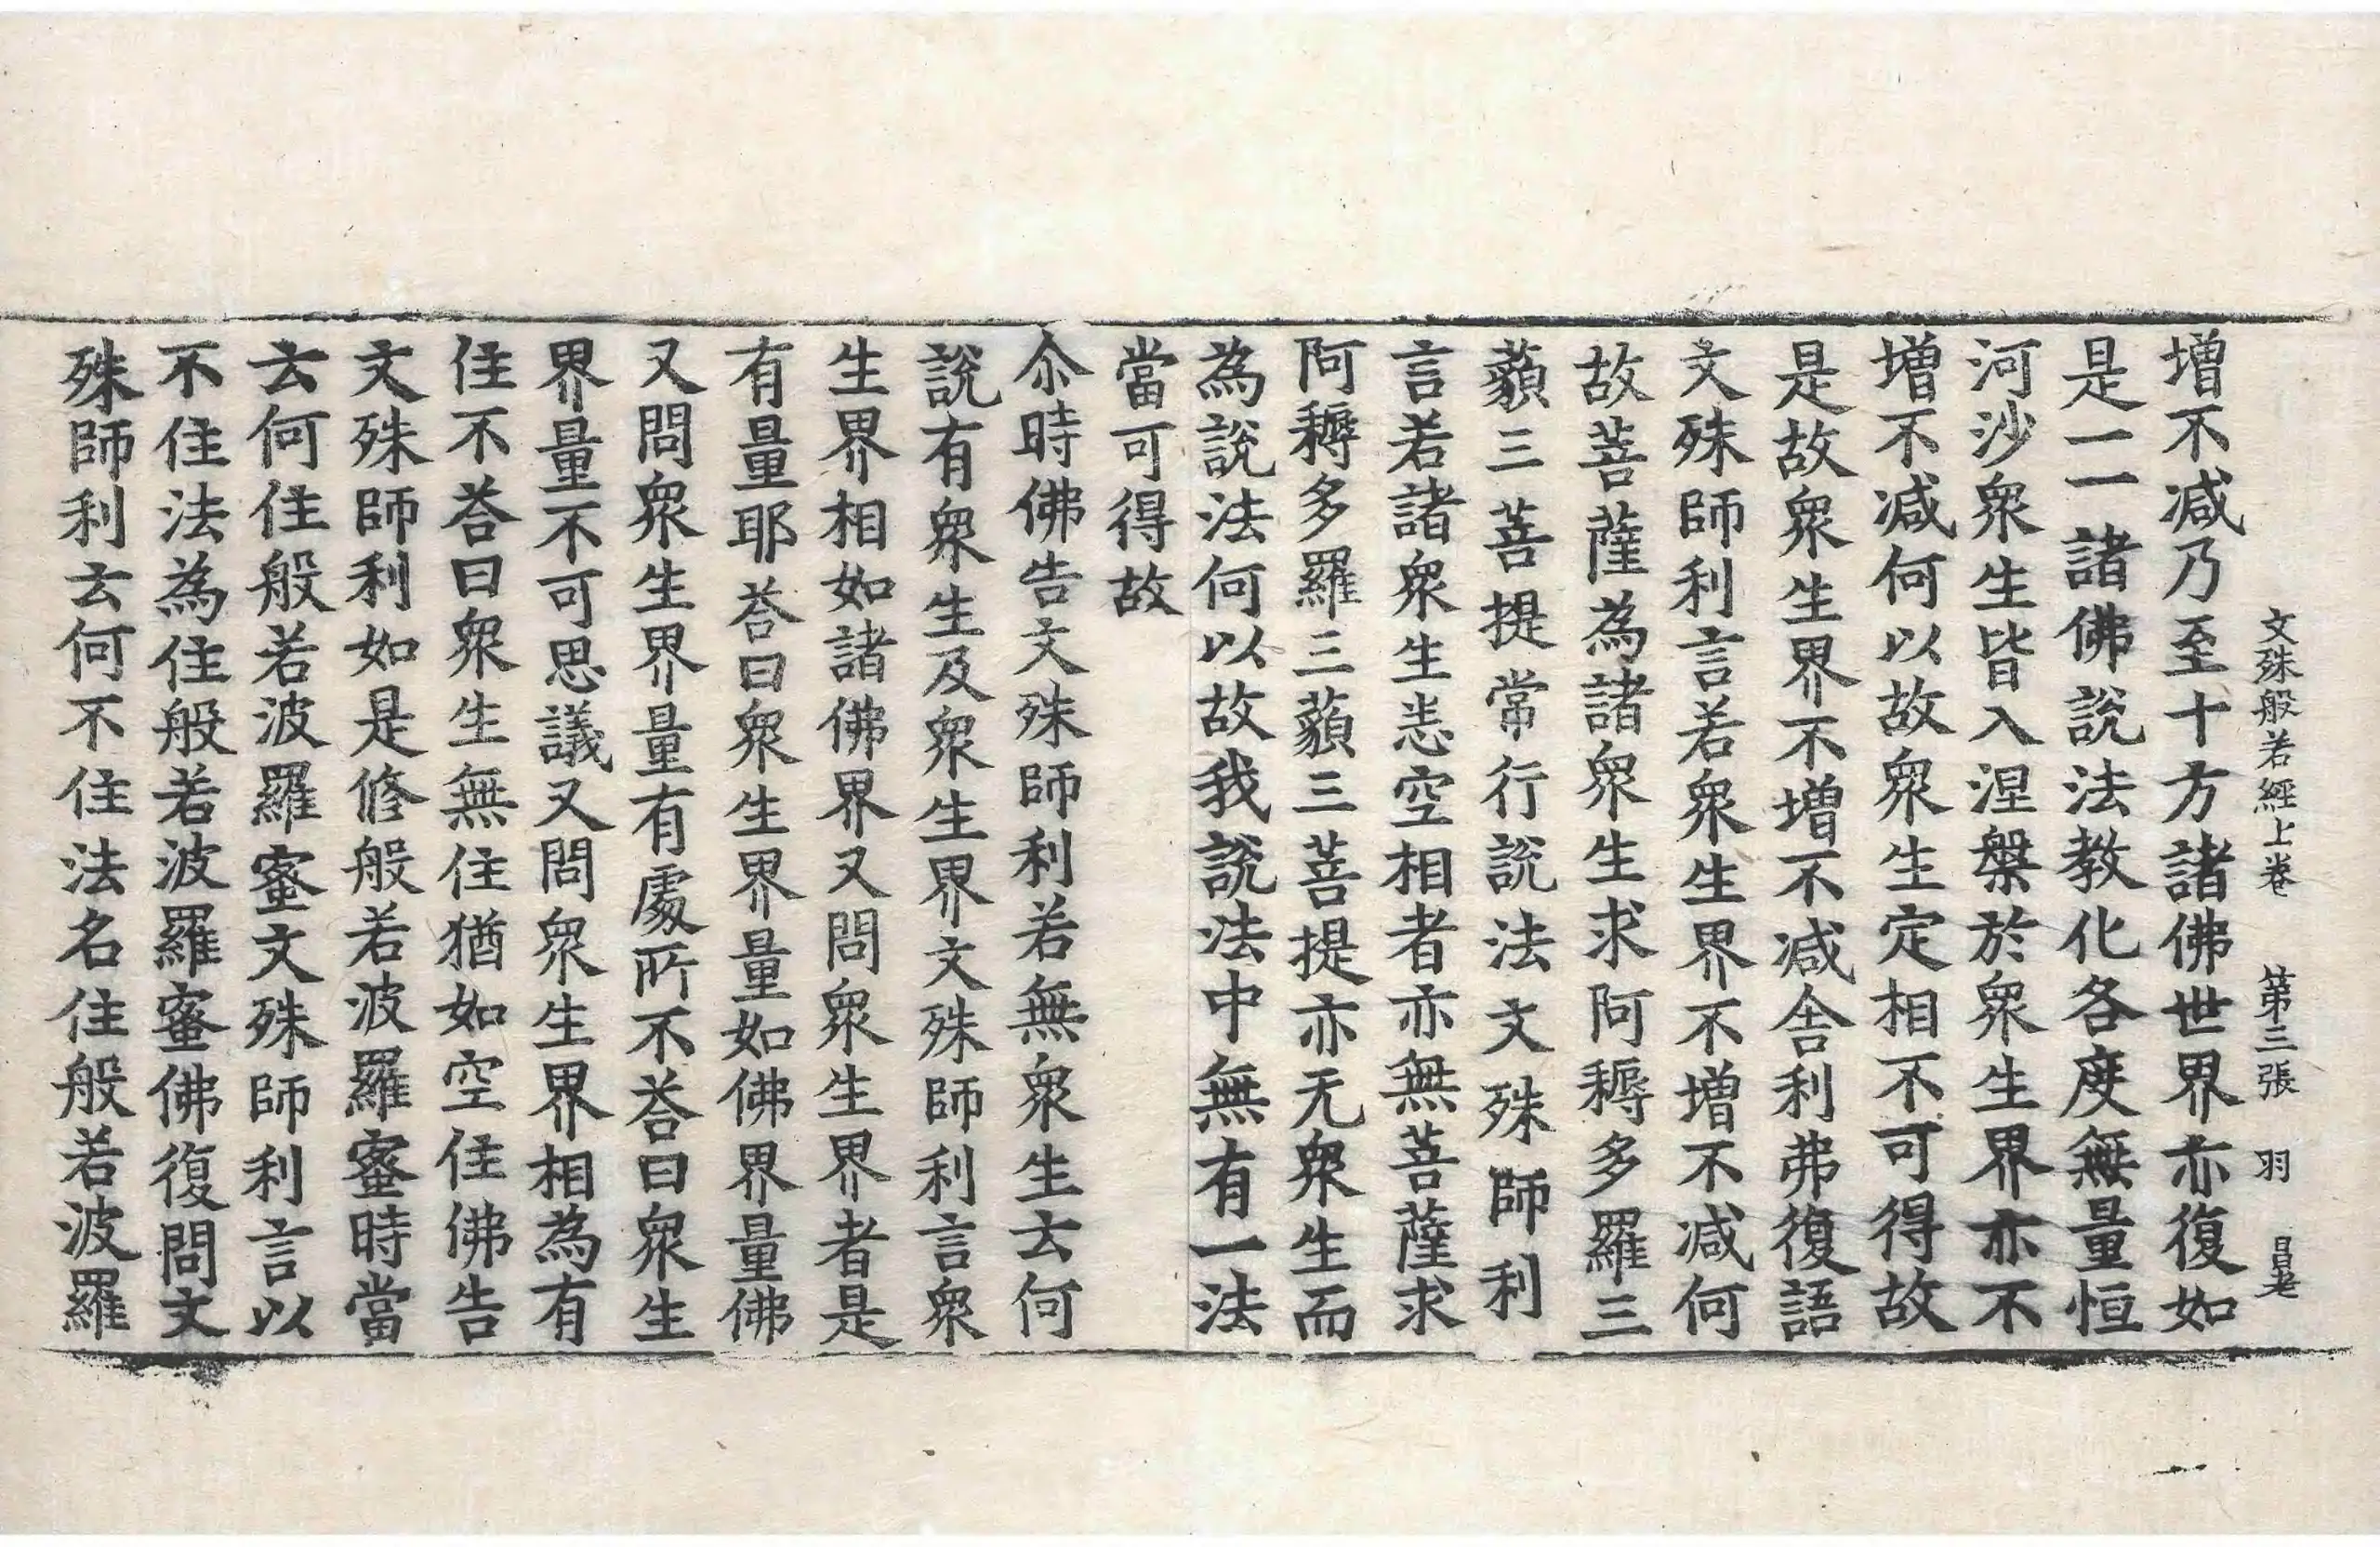 文殊般若經上卷　第三張　羽　昌老
增不减乃至十方諸佛世界亦復如
是一一諸佛說法教化各度無量恒
河沙衆生皆入涅槃於衆生界亦不
增不减何以故衆生定相不可得故
是故衆生界不增不减舍利弗復語
文殊師利言若衆生界不增不减何
故菩薩為諸衆生求阿耨多羅三
藐三菩提常行說法文殊師利
言若諸衆生悉空相者亦無菩薩求
阿耨多羅三藐三菩提亦无衆生而
為說法何以故我說法中無有一法
當可得故
尒時佛告文殊師利若無衆生云何
說有衆生及衆生界文殊師利言衆
生界相如諸佛界又問衆生界者是
有量耶荅曰衆生界量如佛界量佛
又問衆生界量有處所不荅曰衆生
界量不可思議又問衆生界相為有
住不荅曰衆生無住猶如空住佛告
文殊師利如是修般若波羅蜜時當
云何住般若波羅蜜文殊師利言以
不住法為住般若波羅蜜佛復問文
殊師利云何不住法名住般若波羅